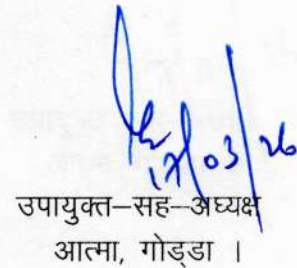 17/03/26
उपायुक्त–सह–अध्यक्ष
आत्मा, गोड्डा ।